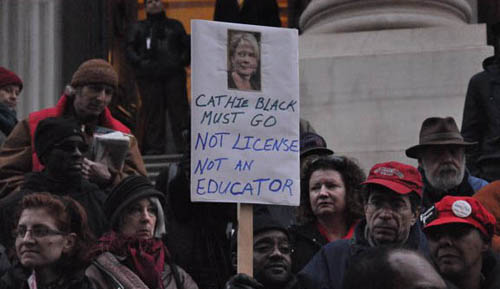 CATHIE BLACK
MUST GO
NOT LICENSE
NOT AN
EDUCATOR